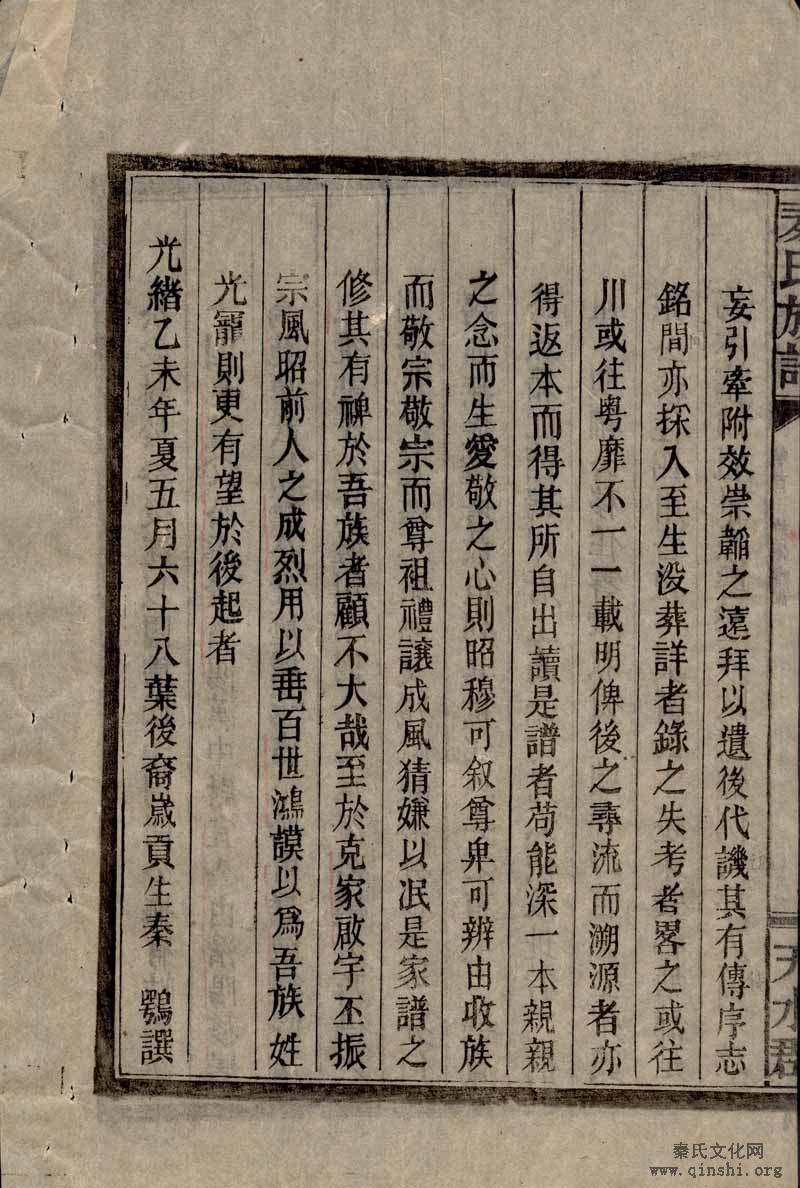 秦氏族譜
天水郡
妄引牽附效崇韜之遠拜以遺後代譏其有傳序志
銘間亦探入至生没葬詳者錄之失考者畧之或往
川或往粤靡不一一載明俾後之尋流而溯源者亦
得返本而得其所自出讀是譜者苟能深一本親親
之念而生愛敬之心則昭穆可叙尊卑可辨由收族
而敬宗敬宗而尊祖禮讓成風猜嫌以泯是家譜之
修其有裨於吾族者顧不大哉至於克家啟宇丕振
宗風昭前人之成烈用以垂百世鴻謨以為吾族姓
光寵則更有望於後起者
光緒乙未年夏五月六十八葉後裔歲貢生秦 鶚譔
秦氏文化网
www.qinshi.org